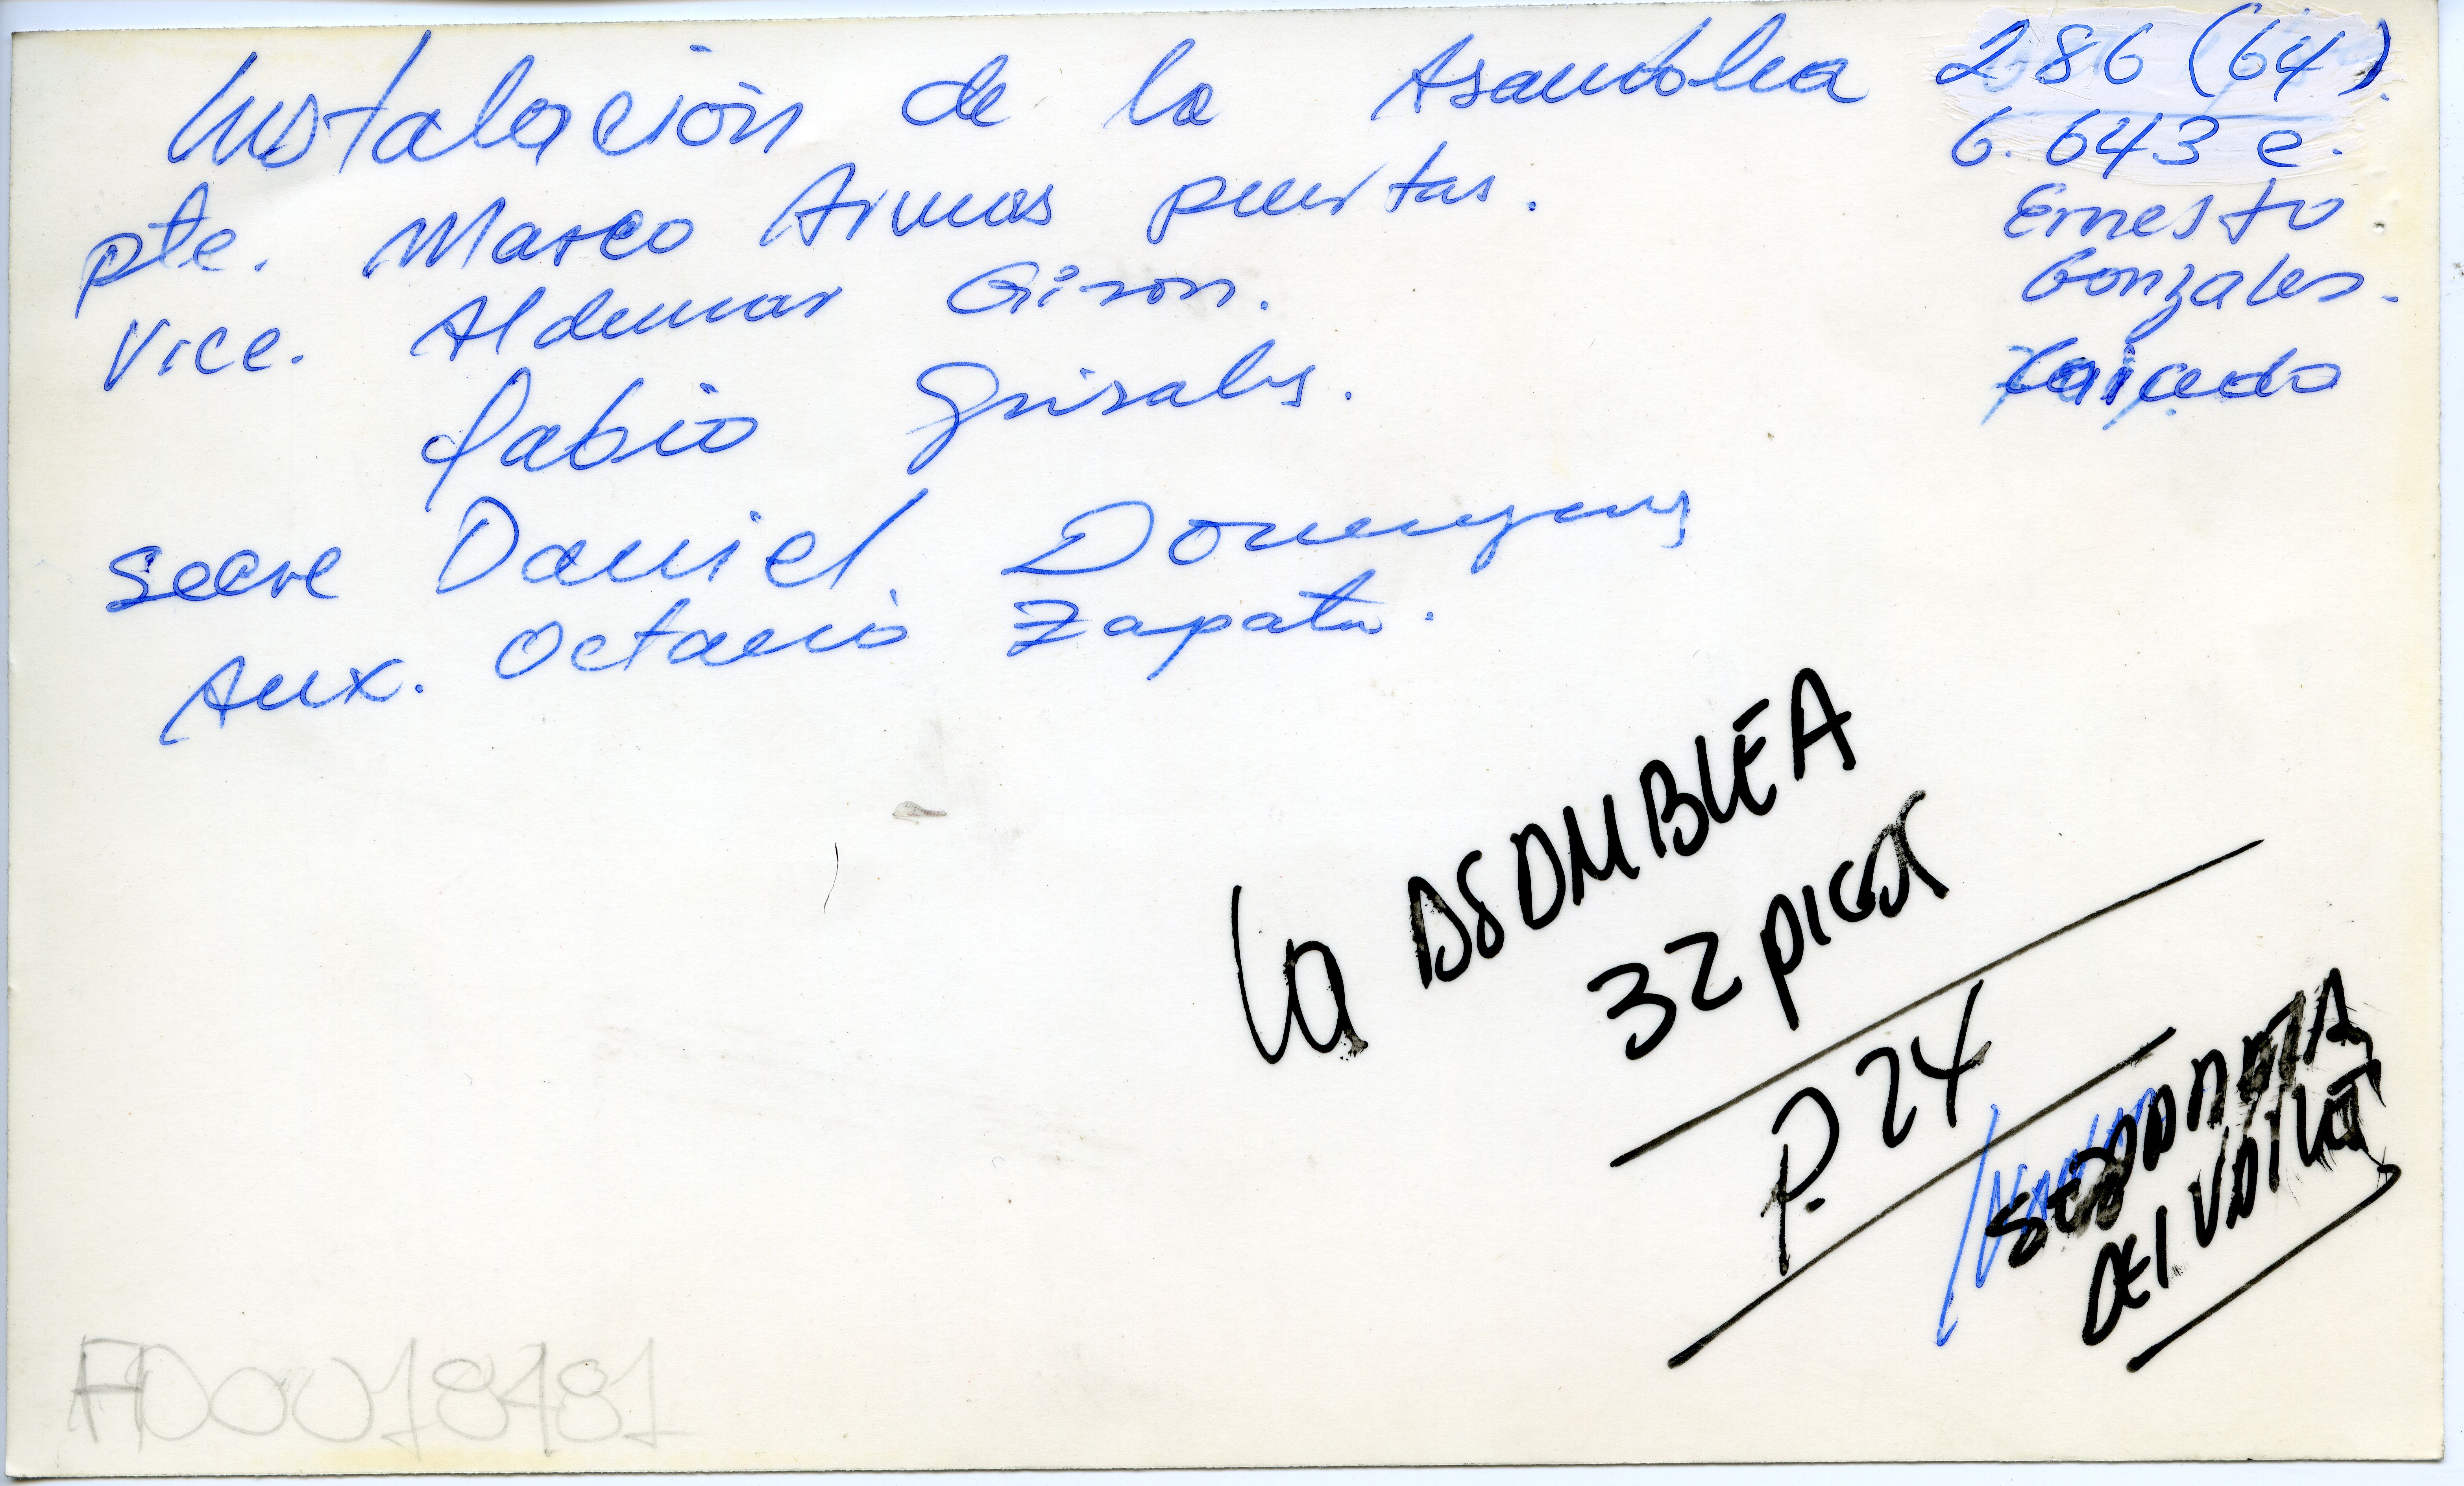 Instalación de la Asamblea
pte. Marco Armas puertas.
Vice. Aldemar Giron.
fabio Grisales.
Secre Daniel Domingues
Aux. Octavio Zapata.
286 (64)
6.643 e.
Ernesto
Gonzales.
Caicedo
La ASAMBLEA
32 picas
P. 24
DEL VALLE
FD0018481